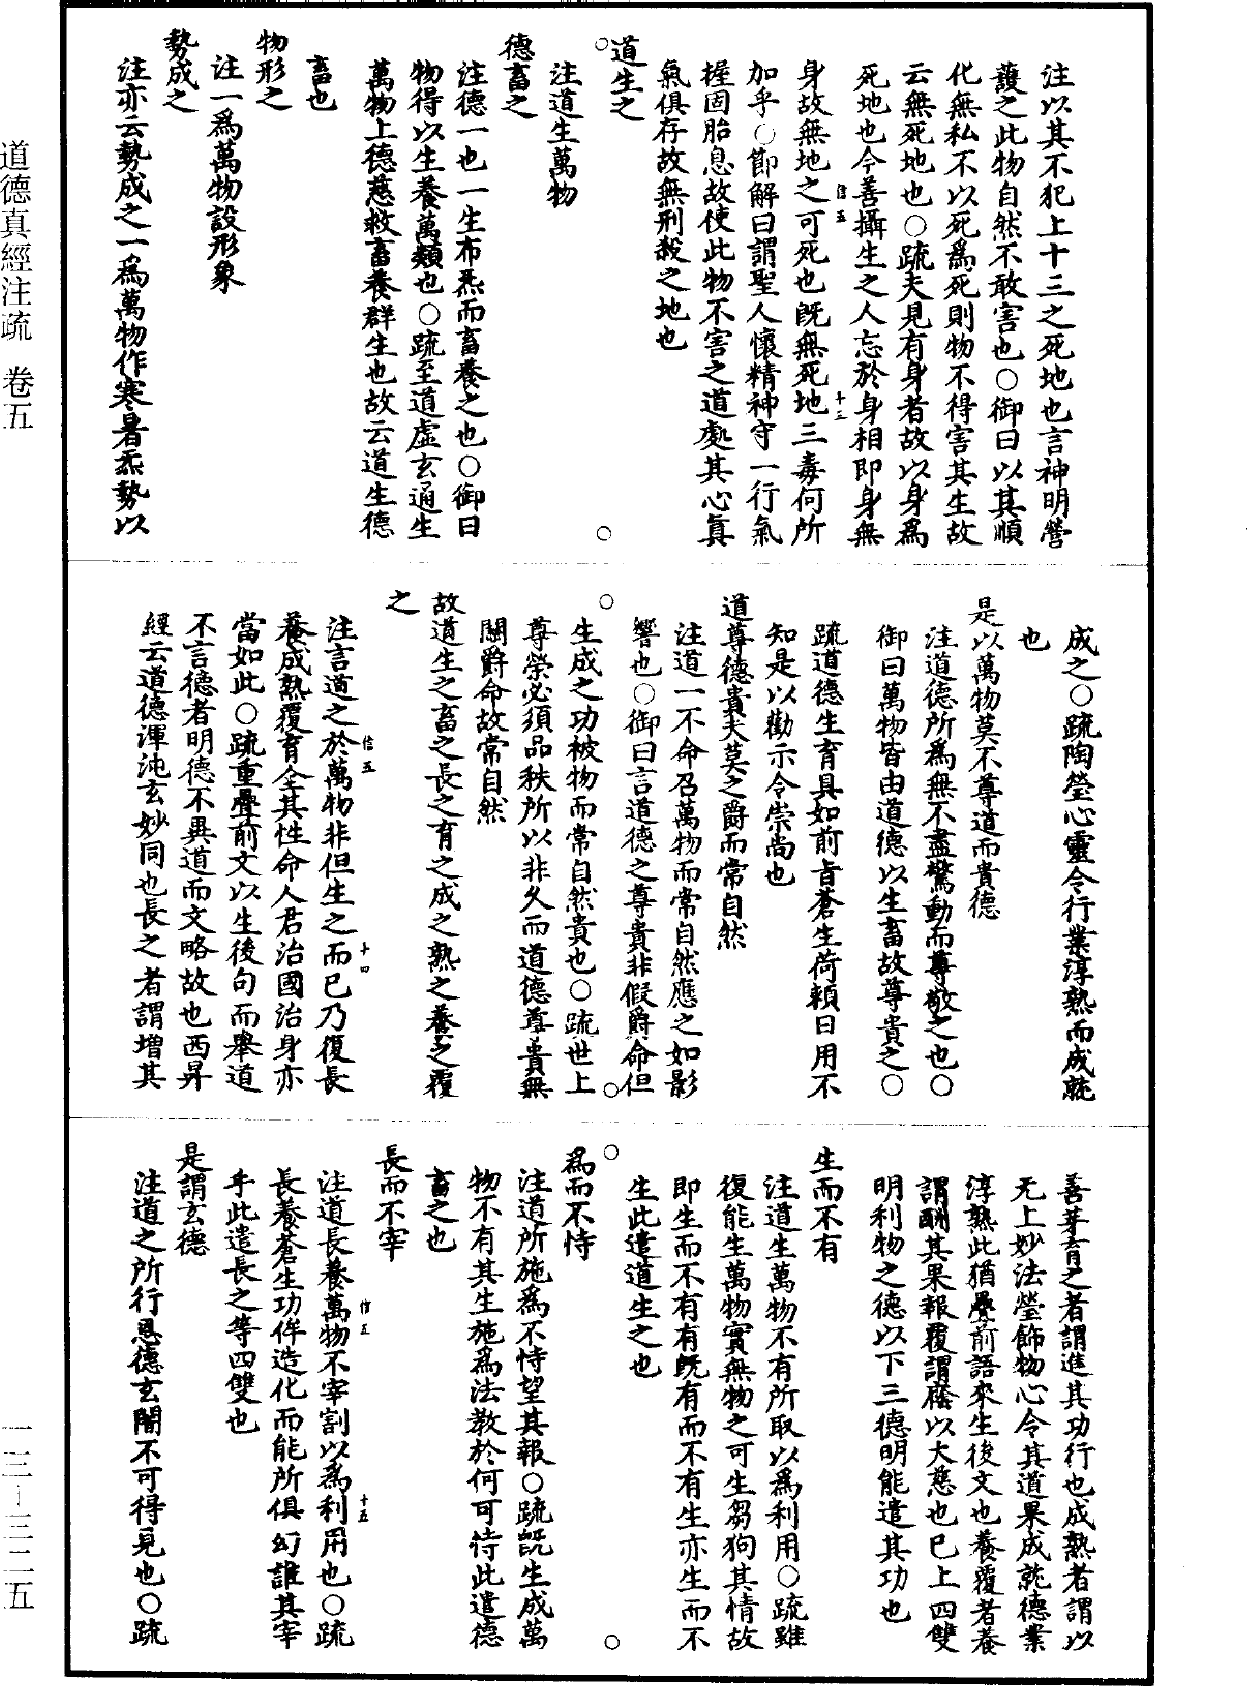 注以其不犯上十三之死地也言神明營
護之此物自然不敢害也○御曰以其順
化無私不以死爲死則物不得害其生故
云無死地也○疏夫見有身者故以身爲
死地也今善攝生之人忘於身相即身無
信五
十三
身故無地之可死也旣無死地三毒何所
加乎○節解曰謂聖人懷精神守一行氣
握固胎息故使此物不害之道處其心眞
氣俱存故無刑殺之地也
道生之
注道生萬物
德畜之
注德一也一生布炁而畜養之也○御曰
物得以生養萬類也○疏至道虛玄通生
萬物上德慈救畜養群生也故云道生德
畜也
物形之
注一爲萬物設形象
勢成之
注亦云勢成之一爲萬物作寒暑炁勢以
成之○疏陶瑩心靈令行業淳熟而成就
也
是以萬物莫不尊道而貴德
注道德所爲無不盡驚動而尊敬之也○
御曰萬物皆由道德以生畜故尊貴之○
疏道德生育具如前旨蒼生荷賴日用不
知是以勸示令崇尚也
道尊德貴夫莫之爵而常自然
注道一不命召萬物而常自然應之如影
響也○御曰言道德之尊貴非假爵命但
生成之功被物而常自然貴也○疏世上
尊榮必須品秩所以非久而道德尊貴無
關爵命故常自然
故道生之畜之長之育之成之熟之養之覆
之
信五
十四
注言道之於萬物非但生之而已乃復長
養成熟覆育全其性命人君治國治身亦
當如此○疏重疊前文以生後句而舉道
不言德者明德不異道而文略故也西昇
經云道德渾沌玄妙同也長之者謂增其
善芽育之者謂進其功行也成熟者謂以
无上妙法瑩飾物心令其道果成就德業
淳熟此猶疊前語來生後文也養覆者養
謂酬其果報覆謂廕以大慈也已上四雙
明利物之德以下三德明能遣其功也
生而不有
注道生萬物不有所取以爲利用○疏雖
復能生萬物實無物之可生芻狗其情故
即生而不有有旣有而不有生亦生而不
生此遣道生之也
爲而不恃
注道所施爲不恃望其報○疏旣生成萬
物不有其生施爲法教於何可恃此遣德
畜之也
長而不宰
信五
十五
注道長養萬物不宰割以爲利用也○疏
長養蒼生功侔造化而能所俱幻誰其宰
乎此遣長之等四雙也
是謂玄德
注道之所行恩德玄闇不可得見也○疏
道德真經注疏　卷五
一三―三二五